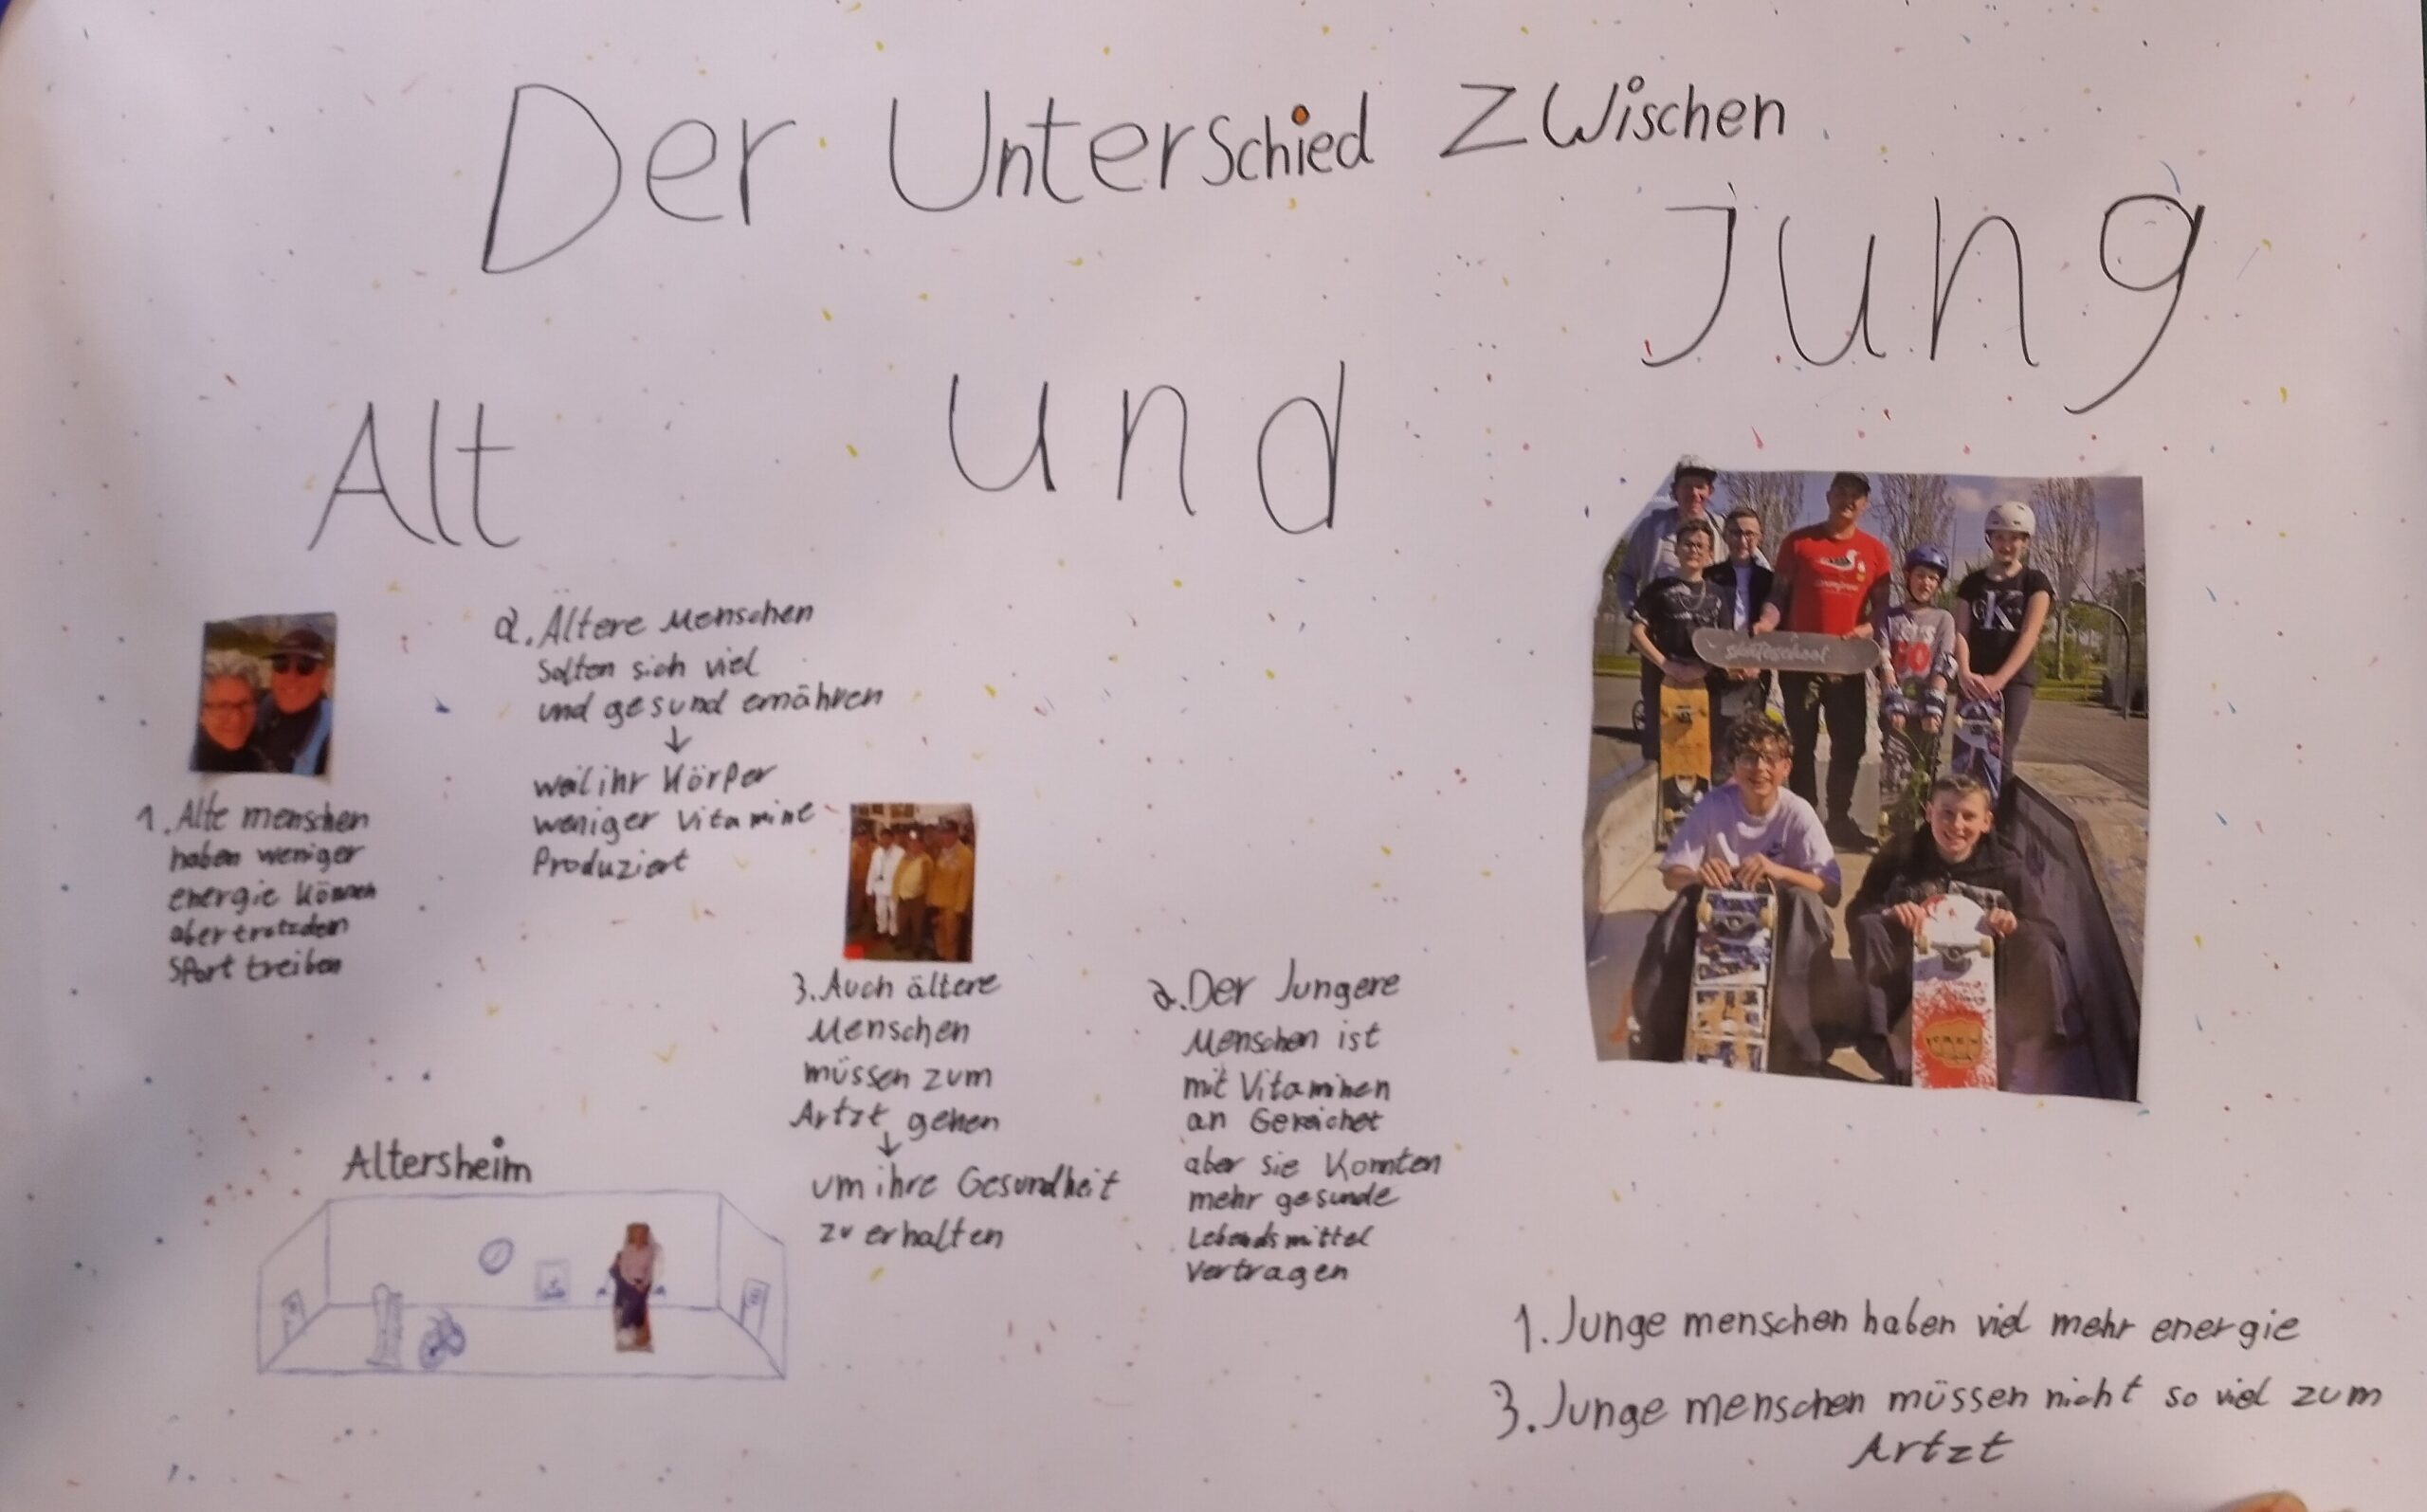 Der Unterschied Zwischen
Jung
und
Alt
2. Ältere Menschen
Solten sich viel
und gesund ernähren
↓
weil ihr Körper
weniger Vitamine
Produziert
1. Alte menschen
haben weniger
energie können
aber trotzdem
Sport treiben
3. Auch ältere
Menschen
müssen zum
Artzt gehen
↓
um ihre Gesundheit
zu erhalten
2. Der Jungere
Menschen ist
mit Vitaminen
an
aber sie Konnten
mehr gesunde
Lebendsmittel
Vertragen
Altersheim
skateschool
CK
1. Junge menschen haben viel mehr energie
3. Junge menschen müssen nicht so viel zum
Artzt